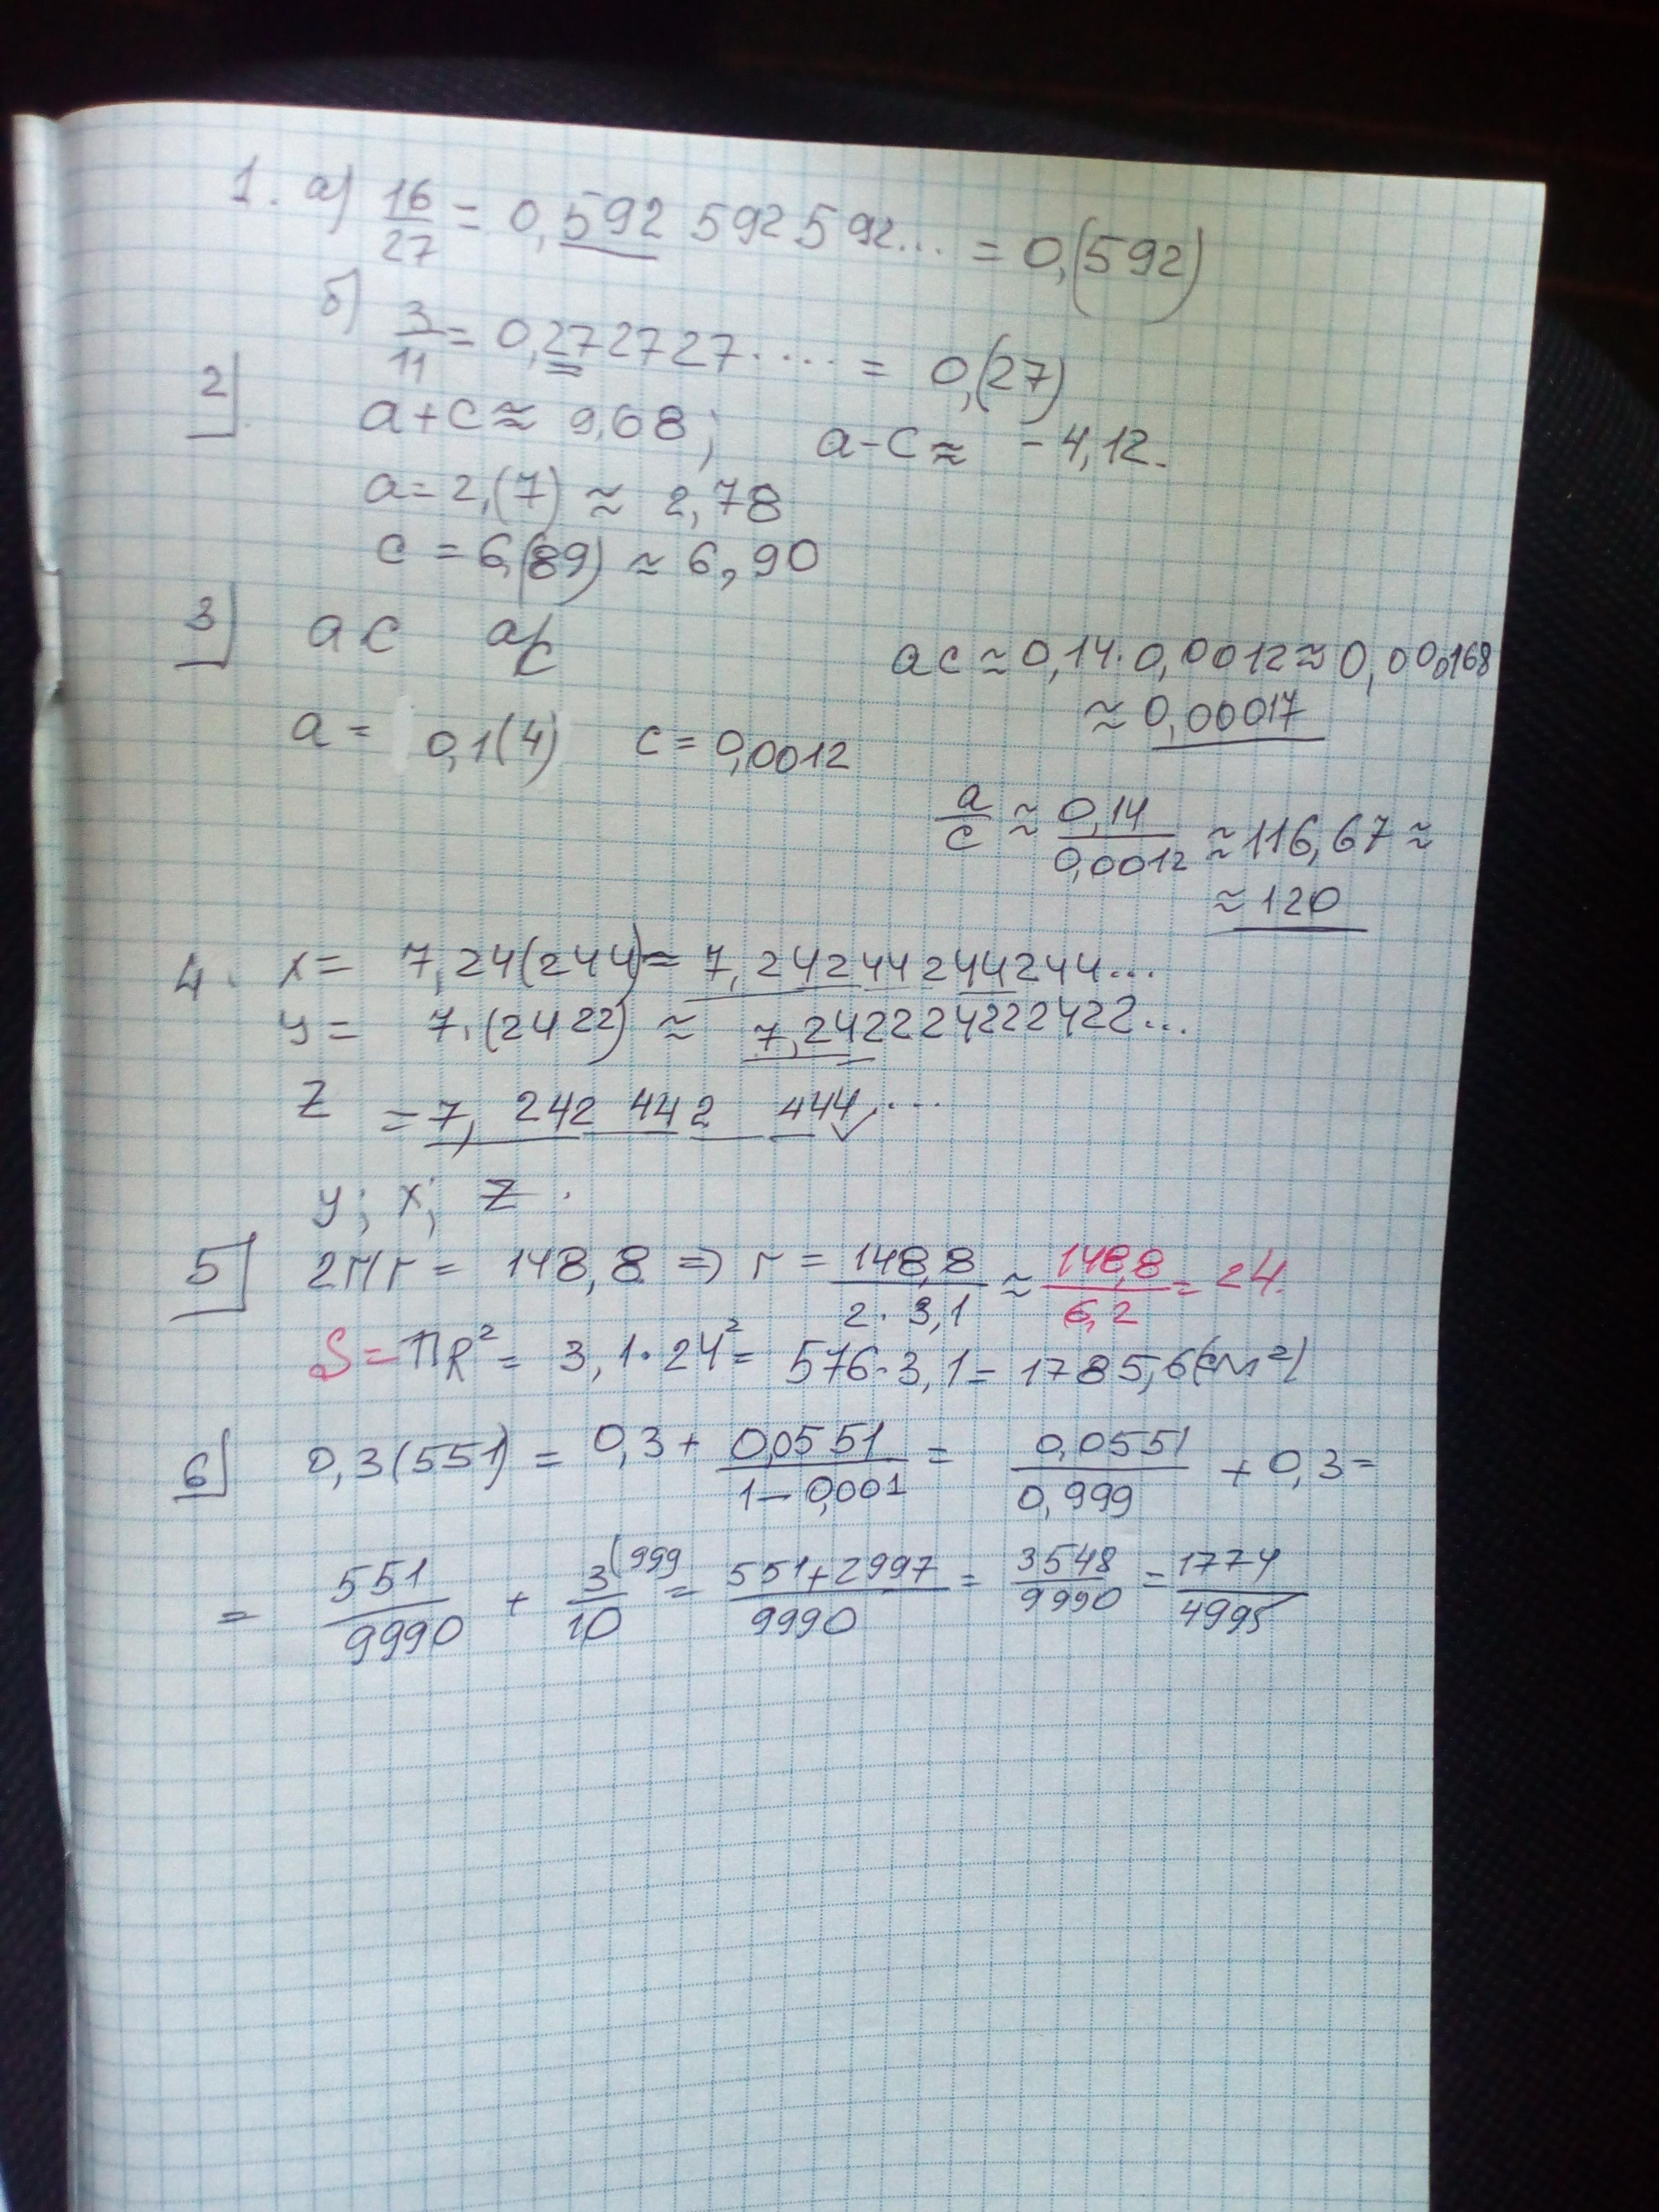 1. а) 16/27 = 0,592 592 592... = 0,(592)
б) 3/11 = 0,272727..... = 0,(27)
2 a+c ≈ 9,68; a-c ≈ -4,12.
a = 2,(7) ≈ 2,78
c = 6,(89) ≈ 6,90
3 ac a/c ac ≈ 0,14·0,0012 ≈ 0,000168
≈ 0,00017
a = 0,1(4) c = 0,0012
a/c ≈ 0,14/0,0012 ≈ 116,67 ≈
≈ 120
4. x = 7,24(244) = 7,24244244244...
y = 7,(2422) ≈ 7,242224222422...
z = 7, 242 44 2 444....
y; x; z.
5 2πr = 148,8 => r = 148,8/2·3,1 ≈ 148,8/6,2 = 24.
S = πR² = 3,1·24² = 576·3,1 = 1785,6(см²)
6 0,3(551) = 0,3 + 0,0551/1-0,001 = 0,0551/0,999 + 0,3 =
= 551/9990 + 3(999/10 = 551+2997/9990 = 3548/9990 = 1774/4995